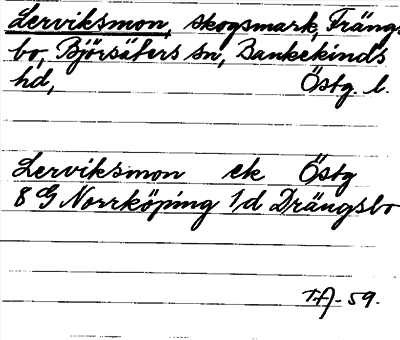 Lerviksmon, skogsmark, Frängs
bo, Björsäters sn, Bankekinds
hd, Östg. l.
Lerviksmon ek Östg
8 G Norrköping 1d Drängsbo
59.